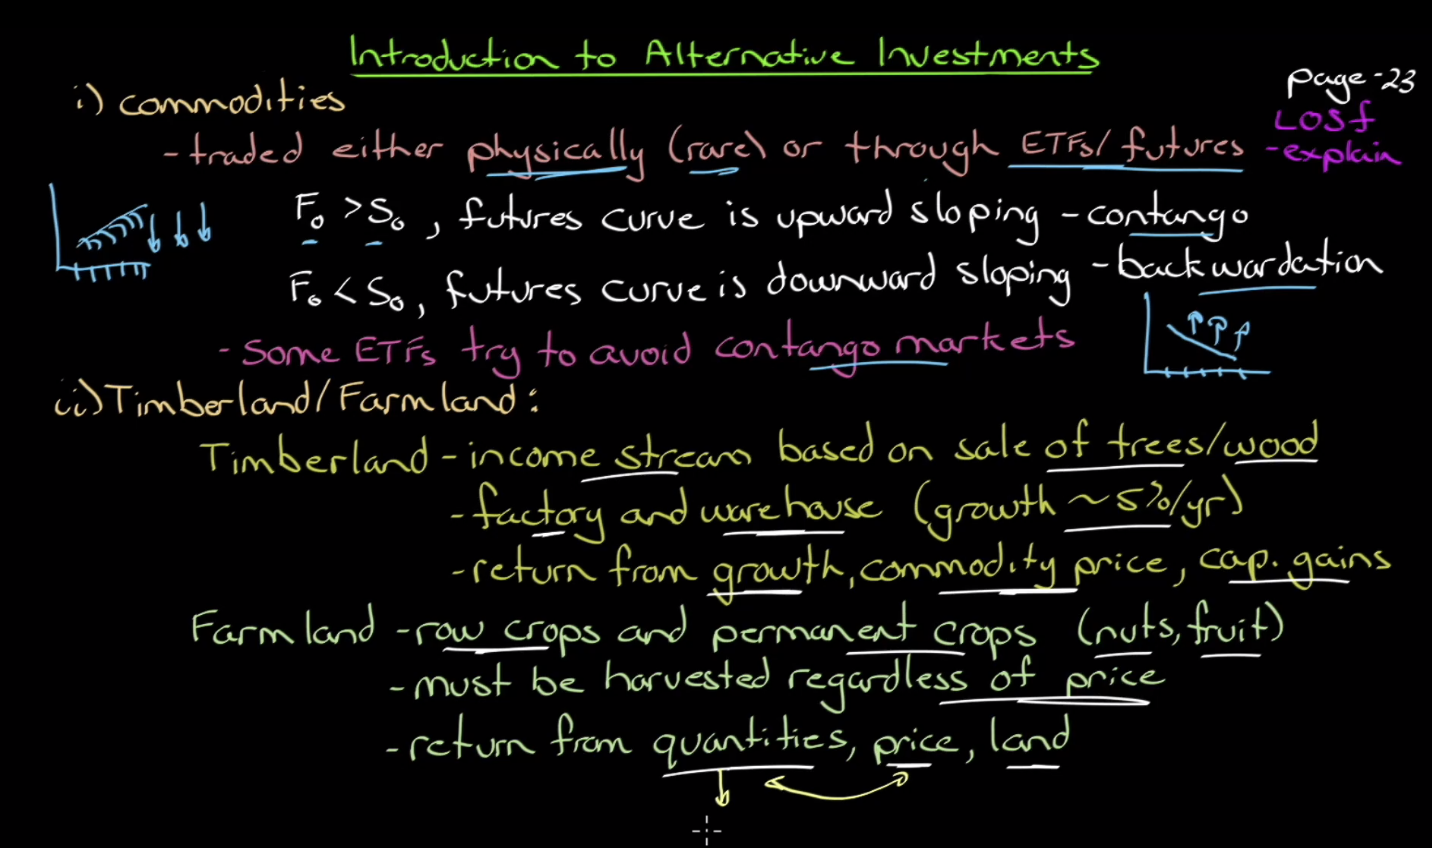 Introduction to Alternative Investments
page-23
LOS f
- explain
i) commodities
- traded either physically (rare) or through ETFs/futures
F₀ > S₀, futures curve is upward sloping - contango
F₀ < S₀, futures curve is downward sloping - backwardation
- Some ETFs try to avoid contango markets
ii) Timberland/Farmland:
Timberland - income stream based on sale of trees/wood
- factory and warehouse (growth ~5%/yr)
- return from growth, commodity price, cap. gains
Farmland - row crops and permanent crops (nuts, fruit)
- must be harvested regardless of price
- return from quantities, price, land